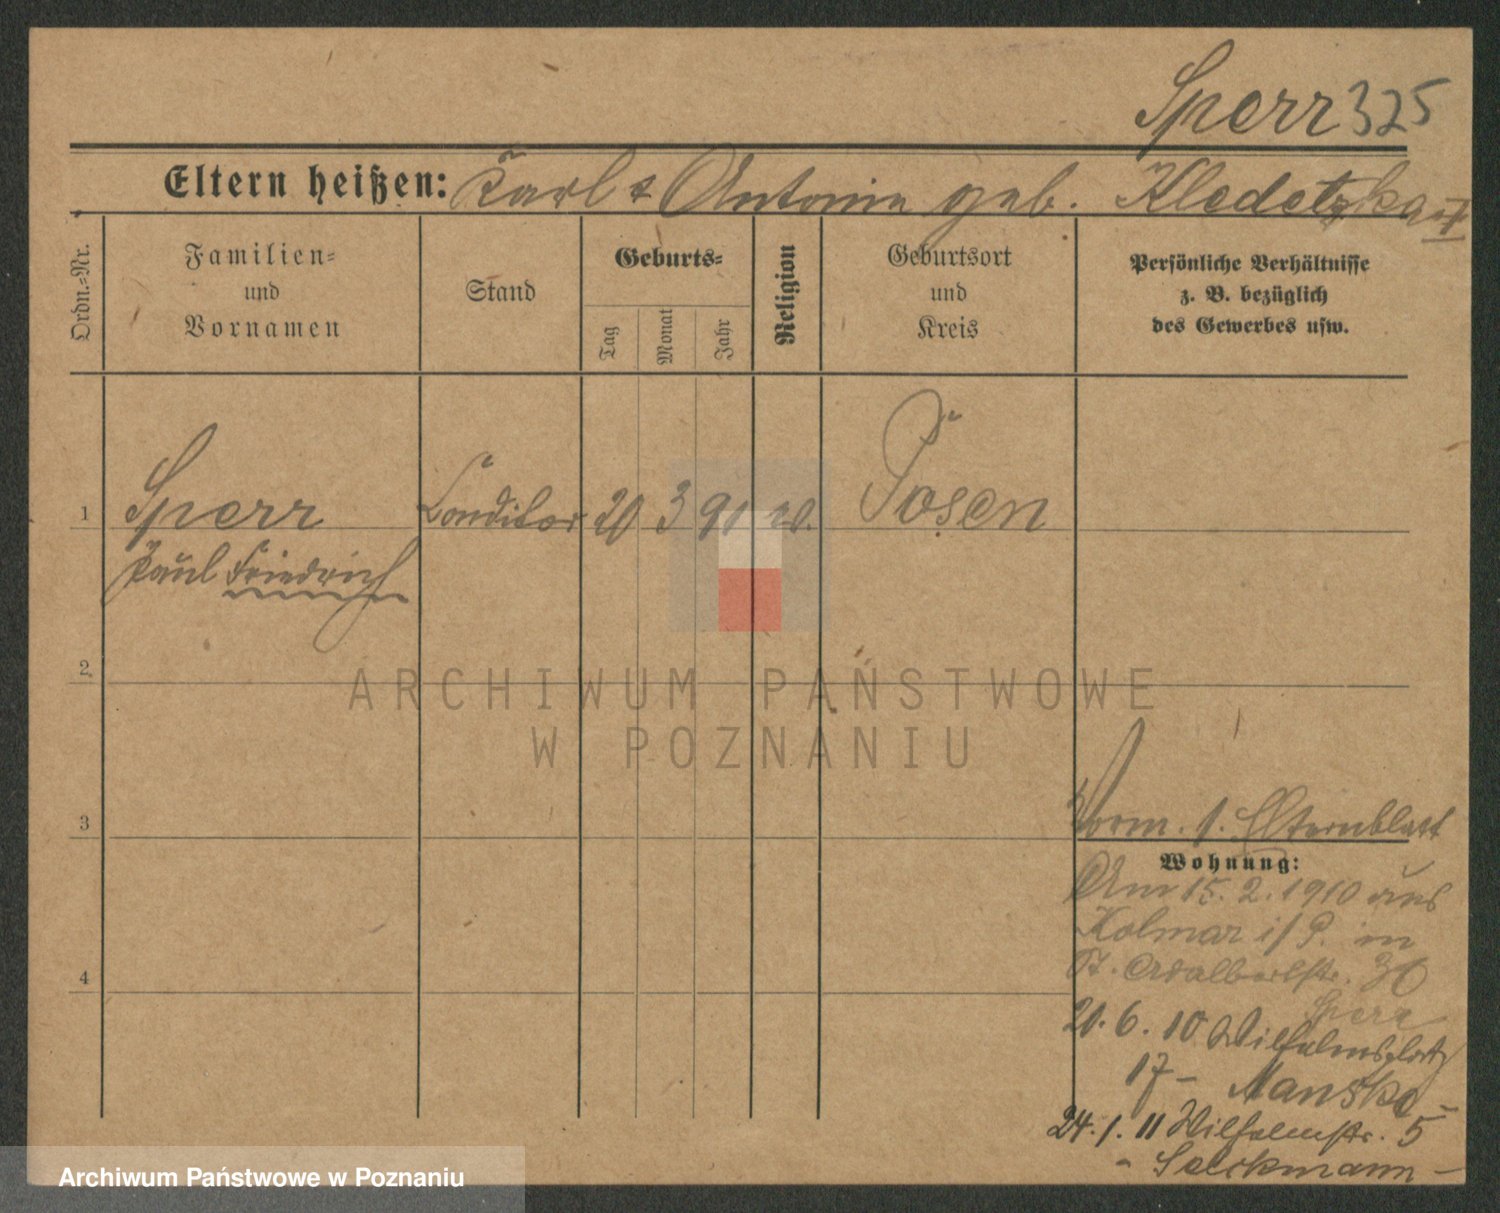 Sperr 325
Eltern heißen: Karl & Antonie geb. Kledetzka
Ordn.-Nr.
Familien=
und
Vornamen
Stand
Geburts=
Tag
Monat
Jahr
Religion
Geburtsort
und
Kreis
Persönliche Verhältnisse
z. B. bezüglich
des Gewerbes usw.
1 Sperr Conditor 20 3 91 Posen
Paul Friedrich
2
3
Vorm. 1. Elternblatt
Wohnung:
Am 15. 2. 1910 aus
Kolmar i/P. in
St. Adalbertstr. 30
Sperr
4
20. 6. 10 Wilhelmsplatz
17 - Manske -
24. 1. 11 Wilhelmstr. 5
ARCHIWUM PAŃSTWOWE
W POZNANIU
Archiwum Państwowe w Poznaniu